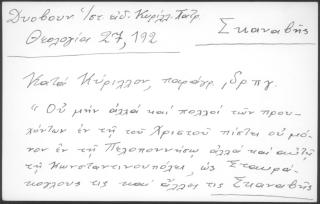 Δυοβουν. Ἱστ. εἰδ. Κυρίλλ. Πατρ.
Θεολογία 27, 192
Σκαναβῆς
Κατὰ Κύριλλον, παράγρ. ͵δρπγ.
"Οὐ μὴν ἀλλὰ καὶ πολλοὶ τῶν πρου-
χόντων ἐν τῇ τοῦ Χριστοῦ πίστει οὐ μό-
νον ἐν τῇ Πελοποννήσῳ ἀλλὰ καὶ αὐτῇ
τῇ Κωνσταντινουπόλει, ὡς Σταυρά-
κογλους τις καὶ ἄλλος τις Σκαναβῆς